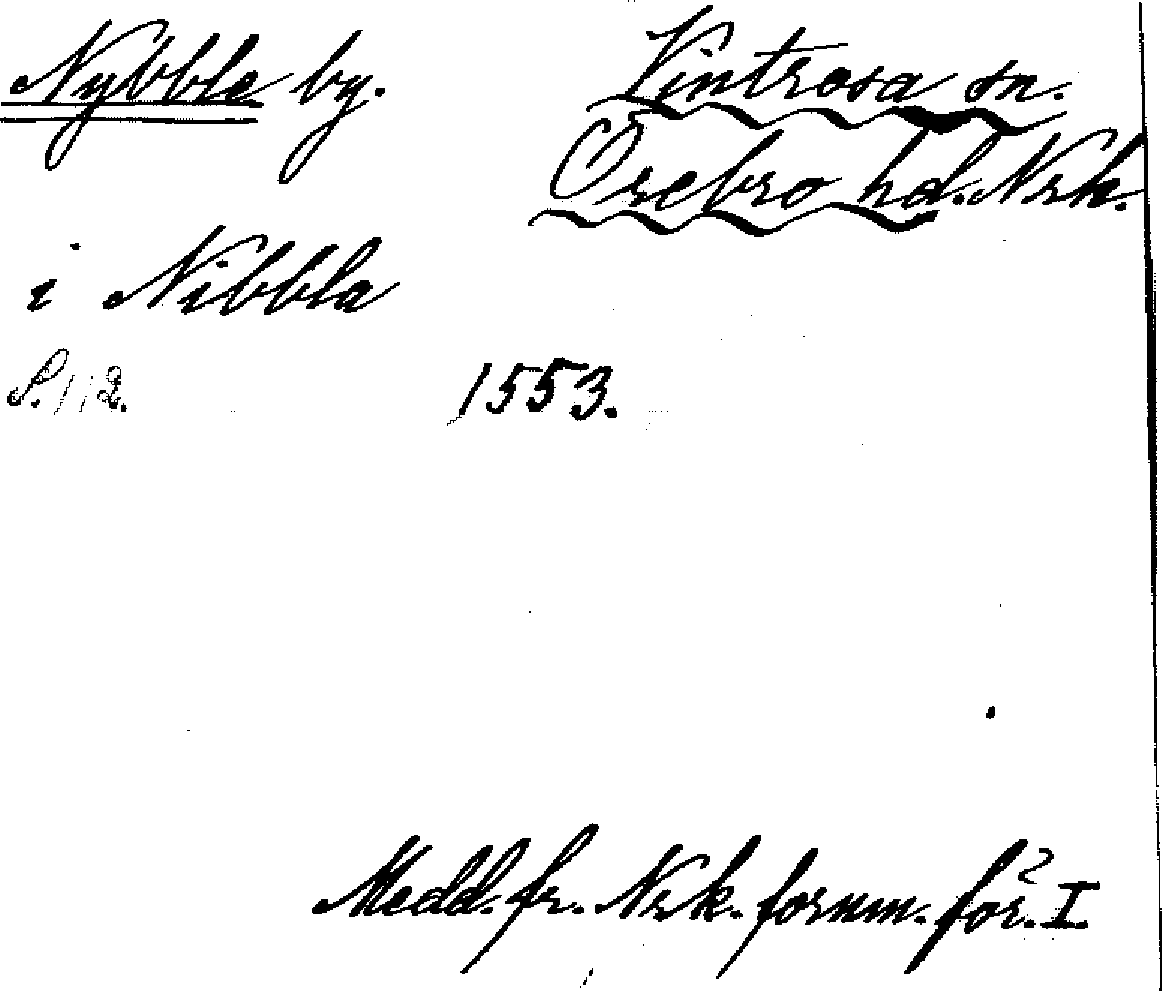 Nybble by. Vintrosa sn.
Örebro hd. Nrk.
i Nibbla
S. 112. 1553.
Medd. fr. Nrk. fornm. för. I.